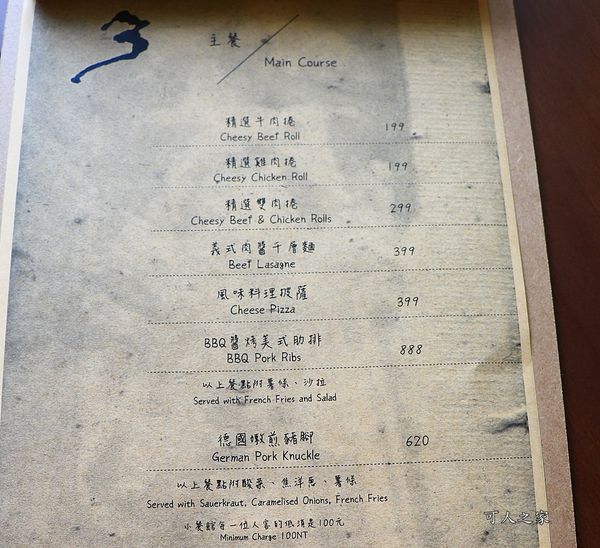 3
主餐
Main Course
精選牛肉捲
199
Cheesy Beef Roll
精選雞肉捲
199
Cheesy Chicken Roll
精選雙肉捲
299
Cheesy Beef & Chicken Rolls
義式肉醬千層麵
399
Beef Lasagne
風味料理披薩
399
Cheese Pizza
BBQ醬烤美式肋排
888
BBQ Pork Ribs
以上餐點附薯條、沙拉
Served with French Fries and Salad
德國燉煎豬腳
620
German Pork Knuckle
以上餐點附酸菜、焦洋蔥、薯條
Served with Sauerkraut, Caramelised Onions, French Fries
小餐館每一位人客的低消是100元
Minimum Charge 100NT
可人之家